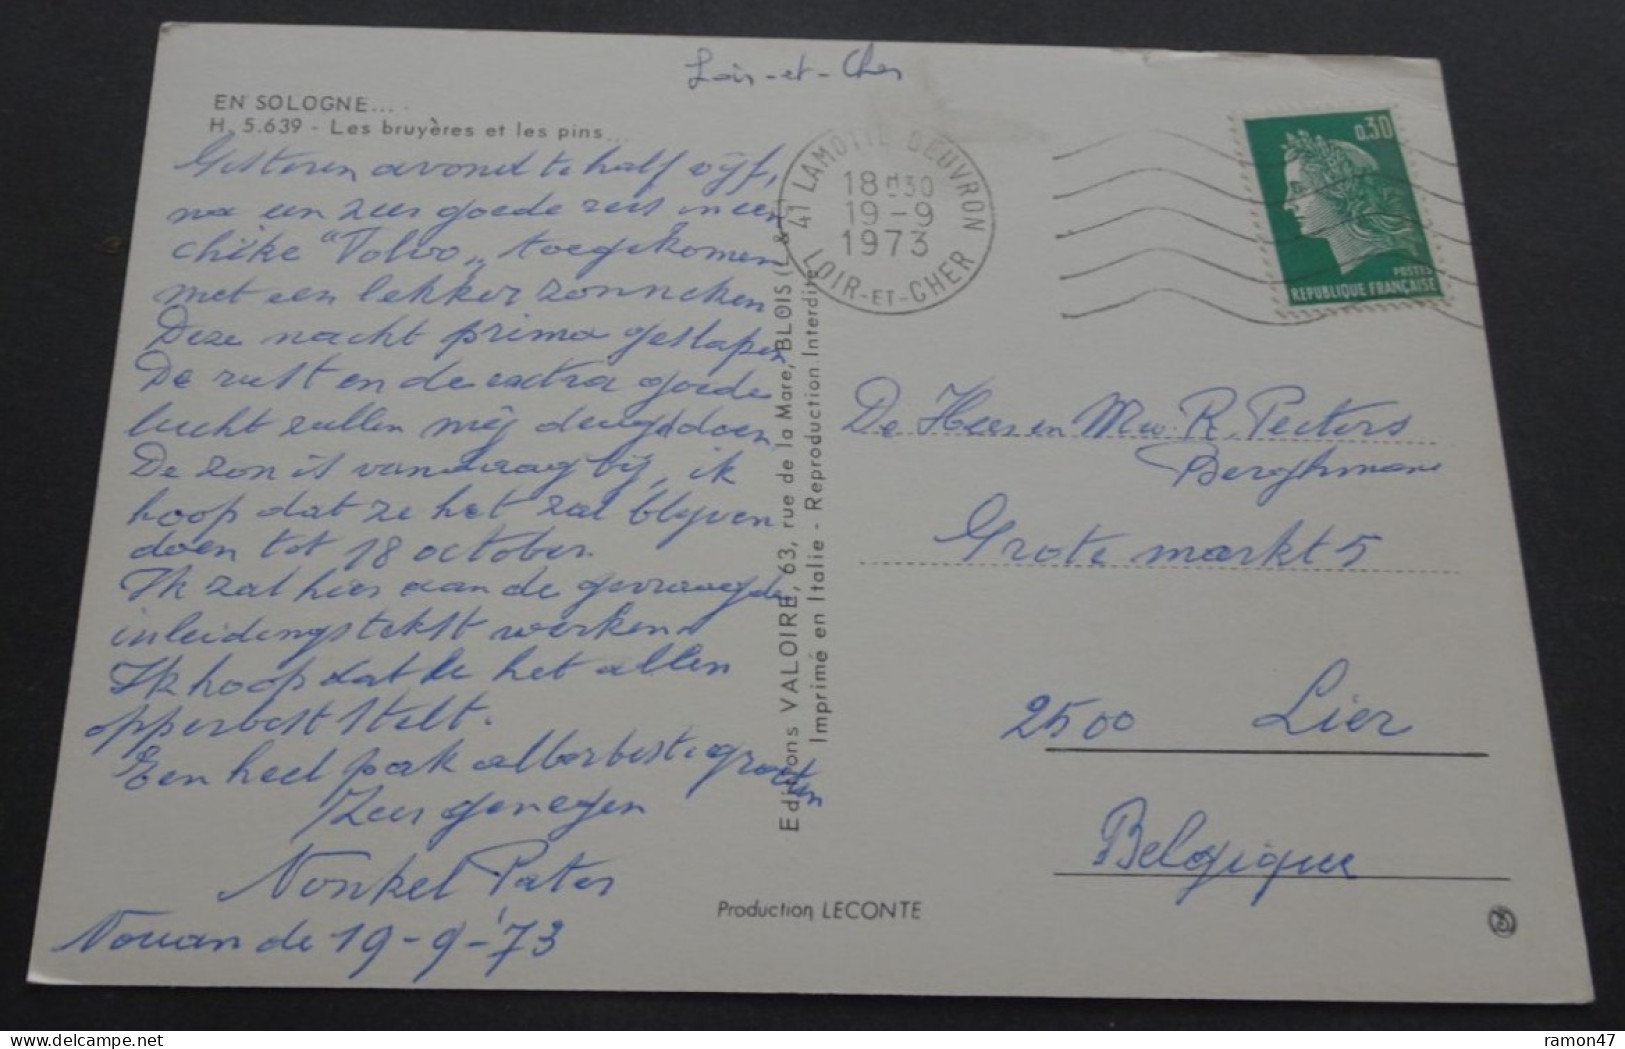 Loir-et-Cher
EN SOLOGNE...
H. 5.639 - Les bruyères et les pins...
Gisteren avond te half vijf,
na een zeer goede reis in een
chike "Volvo„ toegekomen
met een lekker zonneken
Deze nacht prima geslapen
De rust en de extra goede
lucht zullen mij deugd doen
De zon is vandaag bij, ik
hoop dat ze het zal blijven
doen tot 18 october.
Ik zal hier aan de gevraagde
inleidingstekst werken.
Ik hoop dat de het allen
opperbest stelt.
Een heel pak allerbeste groeten
Zeer genegen
Nonkel Pater
Nouan de 19-9-'73
Editions VALOIRE, 63, rue de la Mare, BLOIS (L & C)
Imprimé en Italie - Reproduction Interdite
Production LECONTE
41 LAMOTTE-BEUVRON
18H30
19-9
1973
LOIR-ET-CHER
0,30
POSTES
REPUBLIQUE FRANÇAISE
De Heer en Mw. R. Peeters
Berghmans
Grote markt 5
2500 Lier
Belgique
ramon47